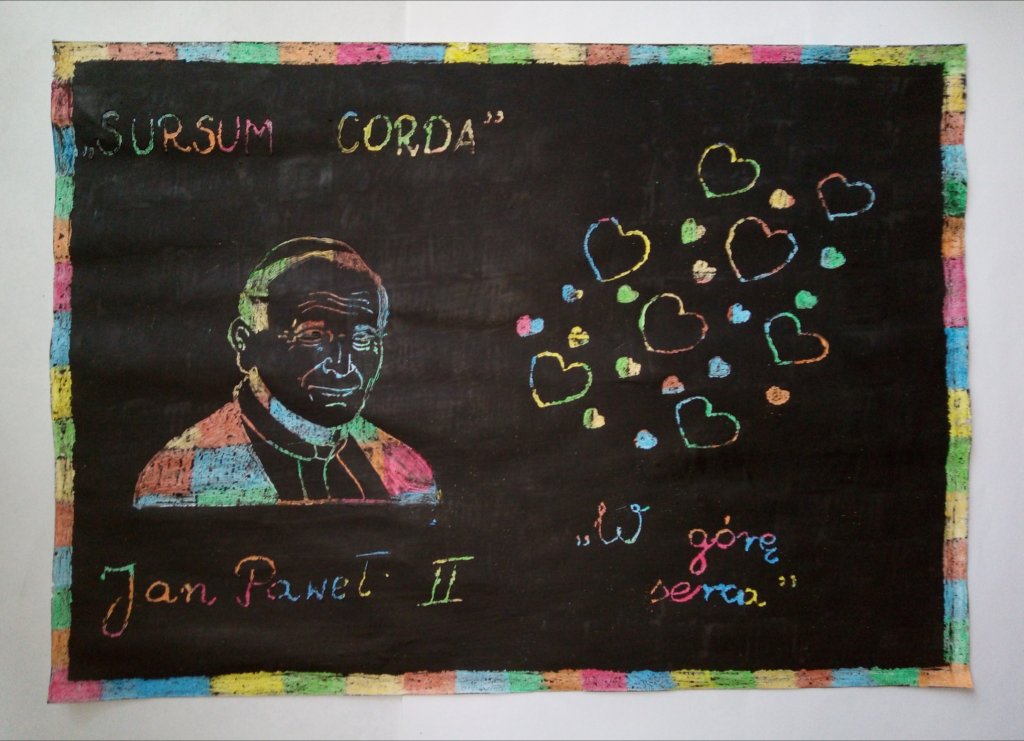 „SURSUM CORDA”
Jan Paweł II
„W górę
serca”